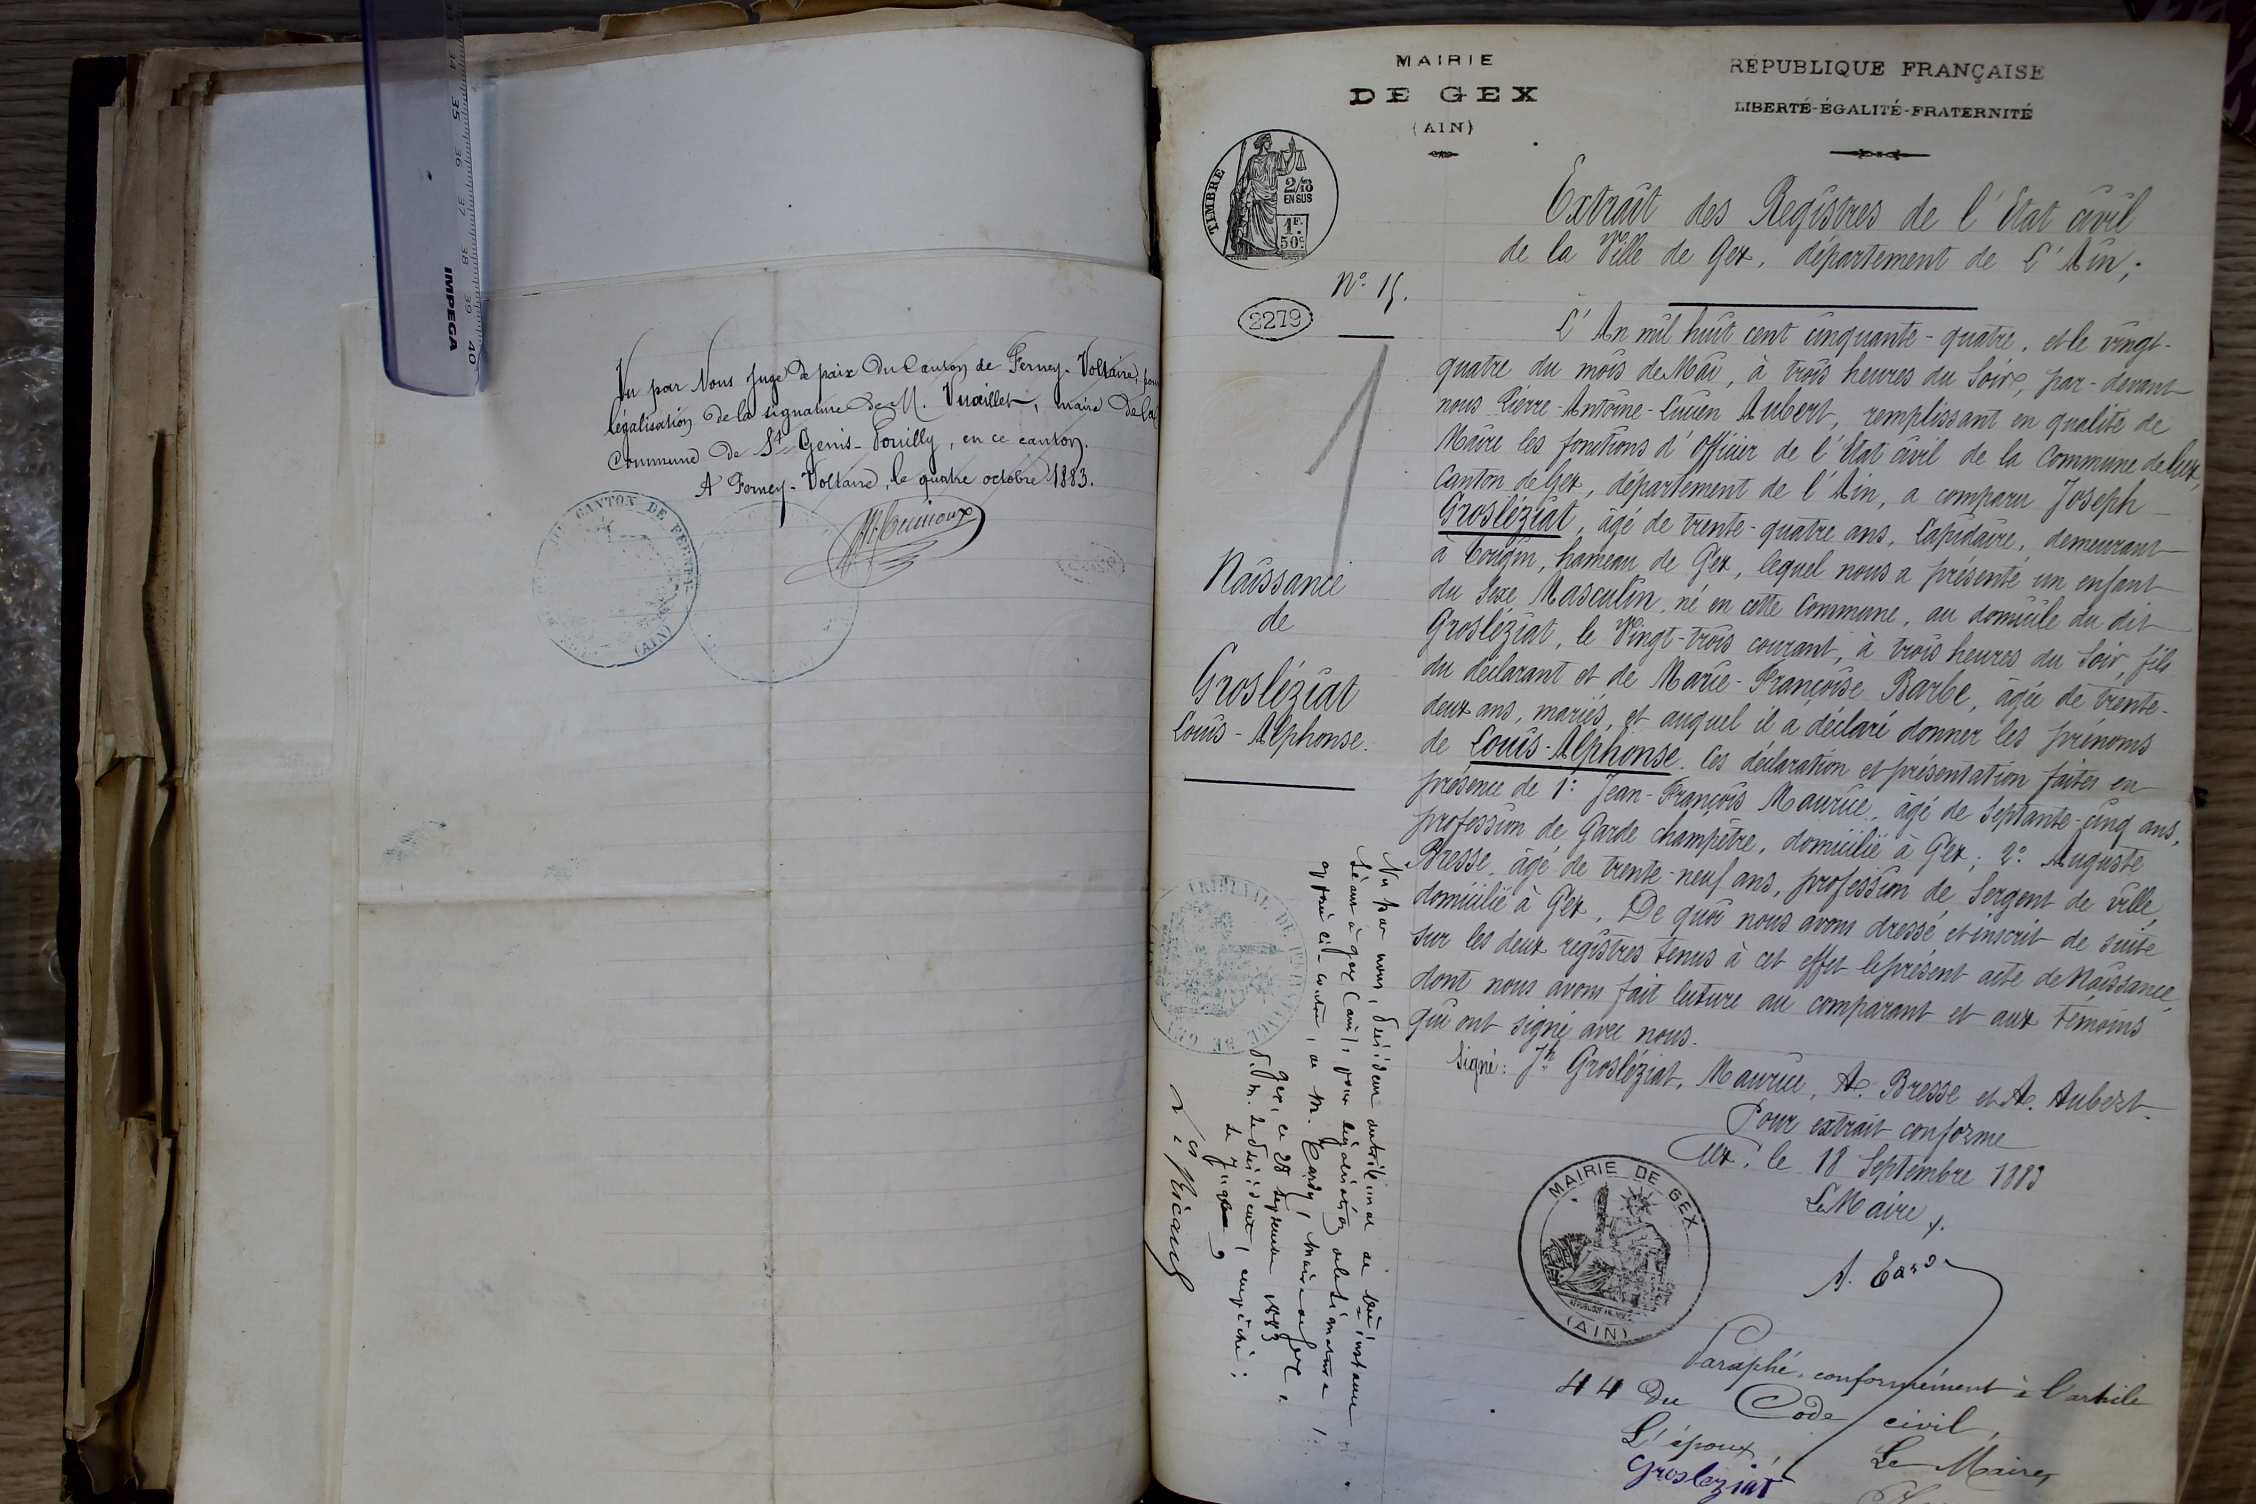 34 35 36 37 38 39 40
IMPEGA
Vu par Nous Juge de paix du Canton de Ferney-Voltaire, pour
légalisation de la signature de M. Vuaillet, maire de la
Commune de St Genis-Pouilly, en ce canton.
A Ferney-Voltaire, le quatre octobre 1883.
CANTON DE FERNEY
(AIN)
MAIRIE
DE GEX
(AIN)
RÉPUBLIQUE FRANÇAISE
LIBERTÉ-ÉGALITÉ-FRATERNITÉ
TIMBRE
2/10
EN SUS
1F.
50c
No 15.
2279
Extrait des Registres de l'Etat civil
de la Ville de Gex, département de l'Ain;
L'An mil huit cent cinquante-quatre, et le vingt-
quatre du mois de Mai, à trois heures du Soir, par-devant
nous Pierre-Antoine-Lucien Aubert, remplissant en qualité de
Maire les fonctions d'Officier de l'Etat civil de la Commune de Gex,
Canton de Gex, département de l'Ain, a comparu Joseph
Grosléziat, âgé de trente-quatre ans, Lapidaire, demeurant
à Tougin, hameau de Gex, lequel nous a présenté un enfant
du Sexe Masculin, né en cette Commune, au domicile du dit
Grosléziat, le Vingt-trois courant, à trois heures du Soir, fils
du déclarant et de Marie-Françoise Barbe, âgée de trente-
deux ans, mariés, et auquel il a déclaré donner les prénoms
de Louis-Alphonse. Ces déclaration et présentation faites en
présence de 1º Jean-François Maurice, âgé de Septante-cinq ans,
profession de Garde champêtre, domicilié à Gex; 2º Auguste
Bresse, âgé de trente-neuf ans, profession de Sergent de ville,
domicilié à Gex. De quoi nous avons dressé et inscrit de suite
sur les deux registres tenus à cet effet le présent acte de Naissance,
dont nous avons fait lecture au comparant et aux témoins
qui ont signé avec nous.
Signé: Jh Grosléziat, Maurice, Ae. Bresse et Ae. Aubert.
Pour extrait conforme
Gex, le 18 Septembre 1883
Le Maire,
MAIRIE DE GEX
(AIN)
Naissance
de
Grosléziat
Louis-Alphonse.
1
Vu par nous, Président du tribunal de 1ère instance
séant à Gex (Ain), pour légalisation de la signature
apposée ci-contre, de M. Tardy, Maire de Gex,
Gex, ce 28 septembre 1883
P. M. le Président, empêché;
Le Juge,
TRIBUNAL DE 1RE INSTANCE DE GEX
Paraphé, conformément à l'article
44 du Code civil,
L'époux,
Le Maire,
Grosleziat